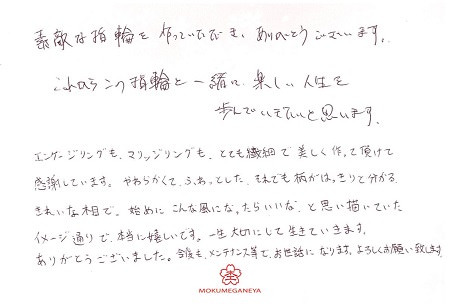 素敵な指輪を作っていただき、ありがとうございます。
これからこの指輪と一緒に、楽しい人生を
歩んでいきたいと思います。
エンゲージリングも、マリッジリングも、とても繊細で美しく作って頂けて
感謝しています。やわらかくて、ふわっとした、それでも柄がはっきりと分かる
きれいな木目で、始めに こんな風になったらいいな、と思い描いていた
イメージ通りで、本当に嬉しいです。一生大切にして生きていきます。
ありがとうございました。今後も、メンテナンス等で、お世話になります。よろしくお願い致します。
MOKUMEGANEYA